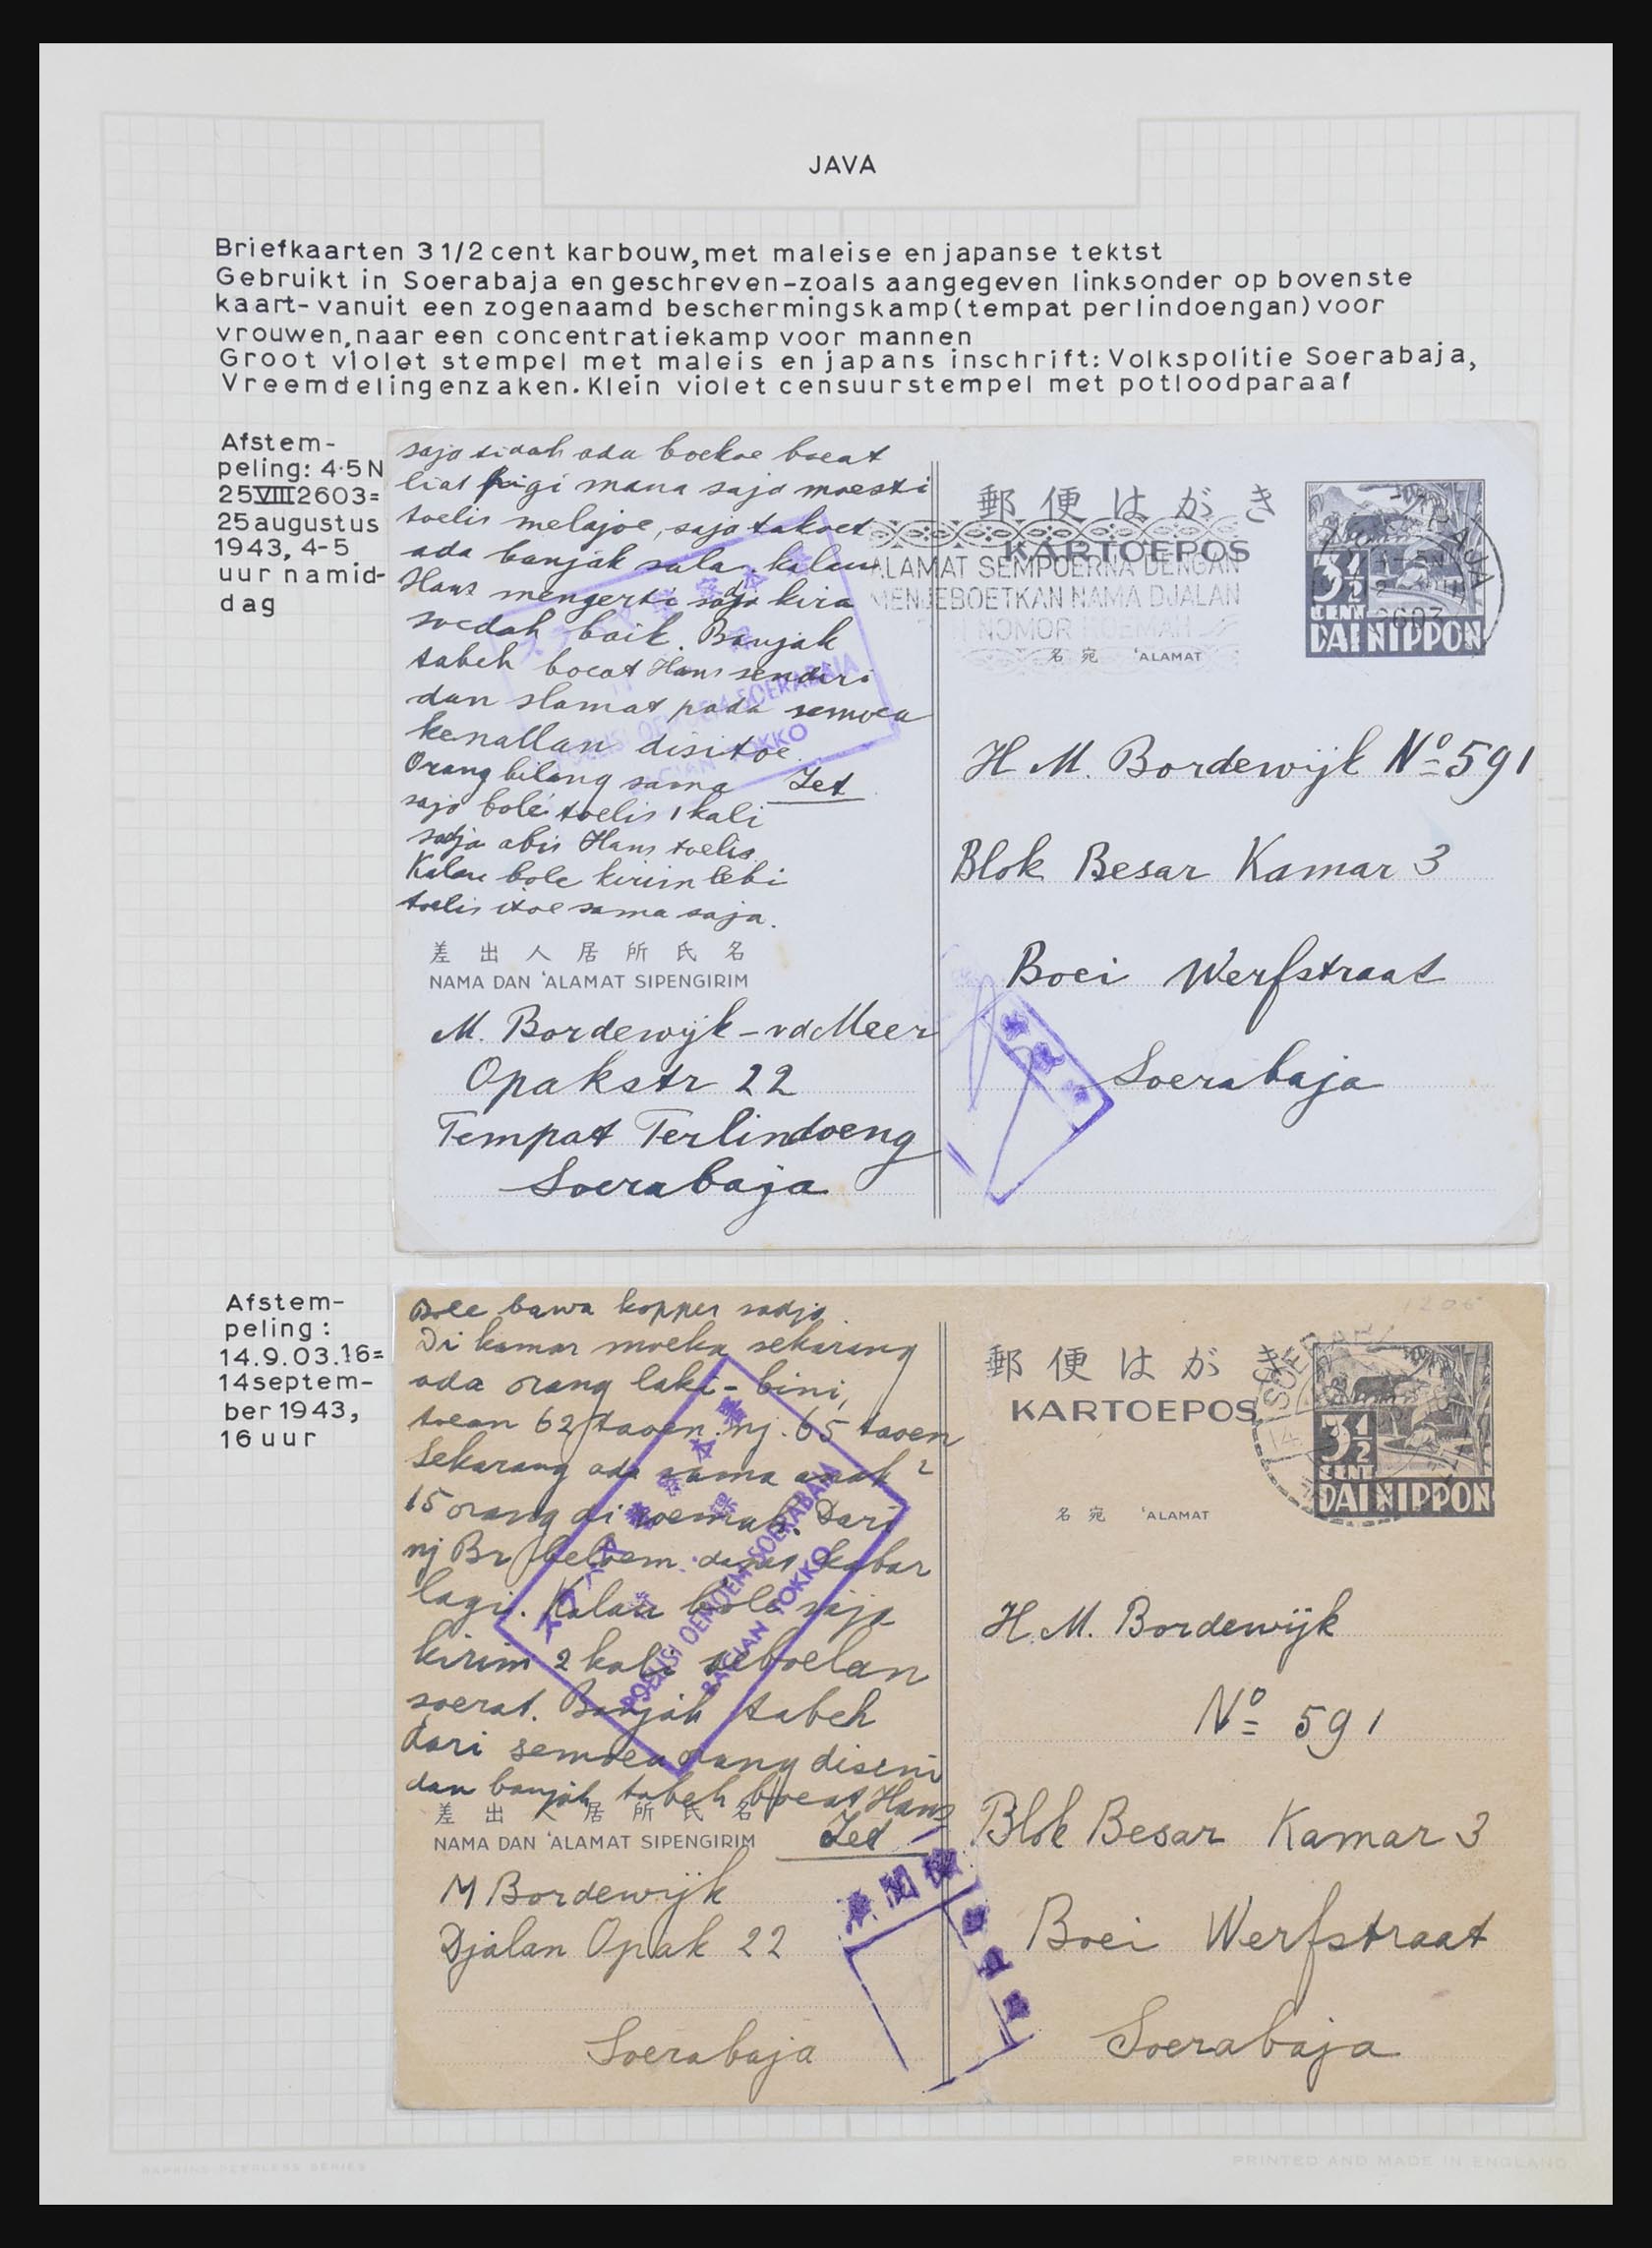 JAVA
Briefkaarten 3 1/2 cent karbouw, met maleise en japanse tektst
Gebruikt in Soerabaja en geschreven-zoals aangegeven linksonder op bovenste
kaart-vanuit een zogenaamd beschermingskamp(tempat perlindoengan) voor
vrouwen, naar een concentratiekamp voor mannen
Groot violet stempel met maleis en japans inschrift: Volkspolitie Soerabaja,
Vreemdelingenzaken. Klein violet censuurstempel met potloodparaaf
Afstem-
peling: 4-5 N
25 VIII 2603=
25 augustus
1943, 4-5
uur namid-
dag
saja tidah ada boekoe boeat
liat pigi mana saja moesti
toelis melajoe, saja takoet
ada banjak sala, kalau
Hans mengerti sadja kira
soedah baik. Banjak
tabeh boeat Hans sendiri
dan slamat pada semoea
kenallan disitoe.
Orang bilang sama Zet
saja bolé toelis 1 kali
sadja abis Hans toelis.
Kalau bole kirim lebi
toelis itoe sama saja.
差出人居所氏名
NAMA DAN 'ALAMAT SIPENGIRIM
M. Bordewijk-vdMeer
Opakstr 22
Tempat Terlindoeng
Soerabaja
POELISI OEMOEM SOERABAJA
BAGIAN TOKKO
郵便はがき
KARTOEPOS
ALAMAT SEMPOERNA DENGAN
MENJEBOETKAN NAMA DJALAN
NOMOR ROEMAH
名宛 'ALAMAT
3 1/2
CENT
DAI NIPPON
2603
H M. Bordewijk Nº 591
Blok Besar Kamar 3
Boei Werfstraat
Soerabaja
Afstem-
peling:
14.9.03.16=
14 septem-
ber 1943,
16 uur
Bole bawa kopper sadja.
Di kamar moeka sekarang
ada orang laki-bini,
toean 62 taoen. nj. 65 taoen
Sekarang ada sama anak2
15 orang di roemah. Dari
nj Br beloem dapat kabar
lagi. Kalau bole saja
kirim 2 kali seboelan
soerat. Banjak tabeh
dari semoea orang diseni
dan banjak tabeh boeat Hans
Zet
差出人居所氏名
NAMA DAN 'ALAMAT SIPENGIRIM
M Bordewijk
Djalan Opak 22
Soerabaja
POELISI OEMOEM SOERABAJA
BAGIAN TOKKO
郵便はがき
KARTOEPOS
名宛 'ALAMAT
3 1/2
CENT
DAI NIPPON
H. M. Bordewijk
Nº 591
Blok Besar Kamar 3
Boei Werfstraat
Soerabaja
PRINTED AND MADE IN ENGLAND